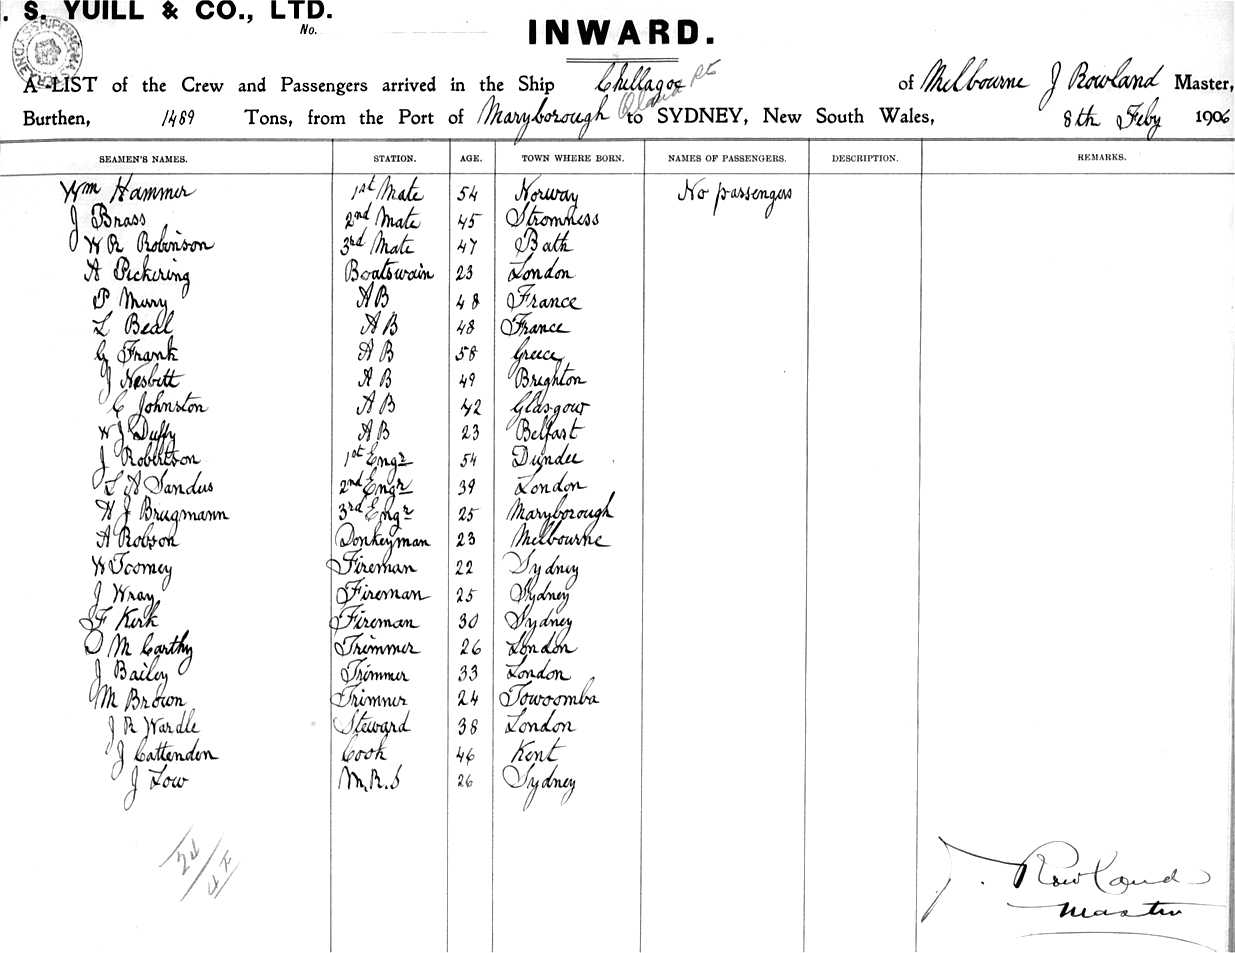 . S. YUILL & CO., LTD.
No.
INWARD.
A LIST of the Crew and Passengers arrived in the Ship Chillagoe of Melbourne J Rowland Master,
Burthen, 1489 Tons, from the Port of Maryborough to SYDNEY, New South Wales, 8th Feby 1906
SEAMEN'S NAMES. STATION. AGE. TOWN WHERE BORN. NAMES OF PASSENGERS. DESCRIPTION. REMARKS.
Wm Hammer 1st Mate 54 Norway No passengers
J Brass 2nd Mate 45 Stromness
W R Robinson 3rd Mate 47 Bath
A Pickering Boatswain 23 London
P Murry A B 48 France
L Beal A B 48 France
G Frank A B 58 Greece
J Nesbitt A B 49 Brighton
C Johnston A B 42 Glasgow
W J Duffy A B 23 Belfast
J Robertson 1st Engr 54 Dundee
L A Sandus 2nd Engr 39 London
H J Brugmann 3rd Engr 25 Maryborough
A Robson Donkeyman 23 Melbourne
W Toomey Fireman 22 Sydney
J Wray Fireman 25 Sydney
F Kirk Fireman 30 Sydney
D McCarthy Trimmer 26 London
J Bailey Trimmer 33 London
M Brown Trimmer 24 Towoomba
J R Wardle Steward 38 London
J Cattenden Cook 46 Kent
J Low M.R.S 26 Sydney
J. Rowland
Master